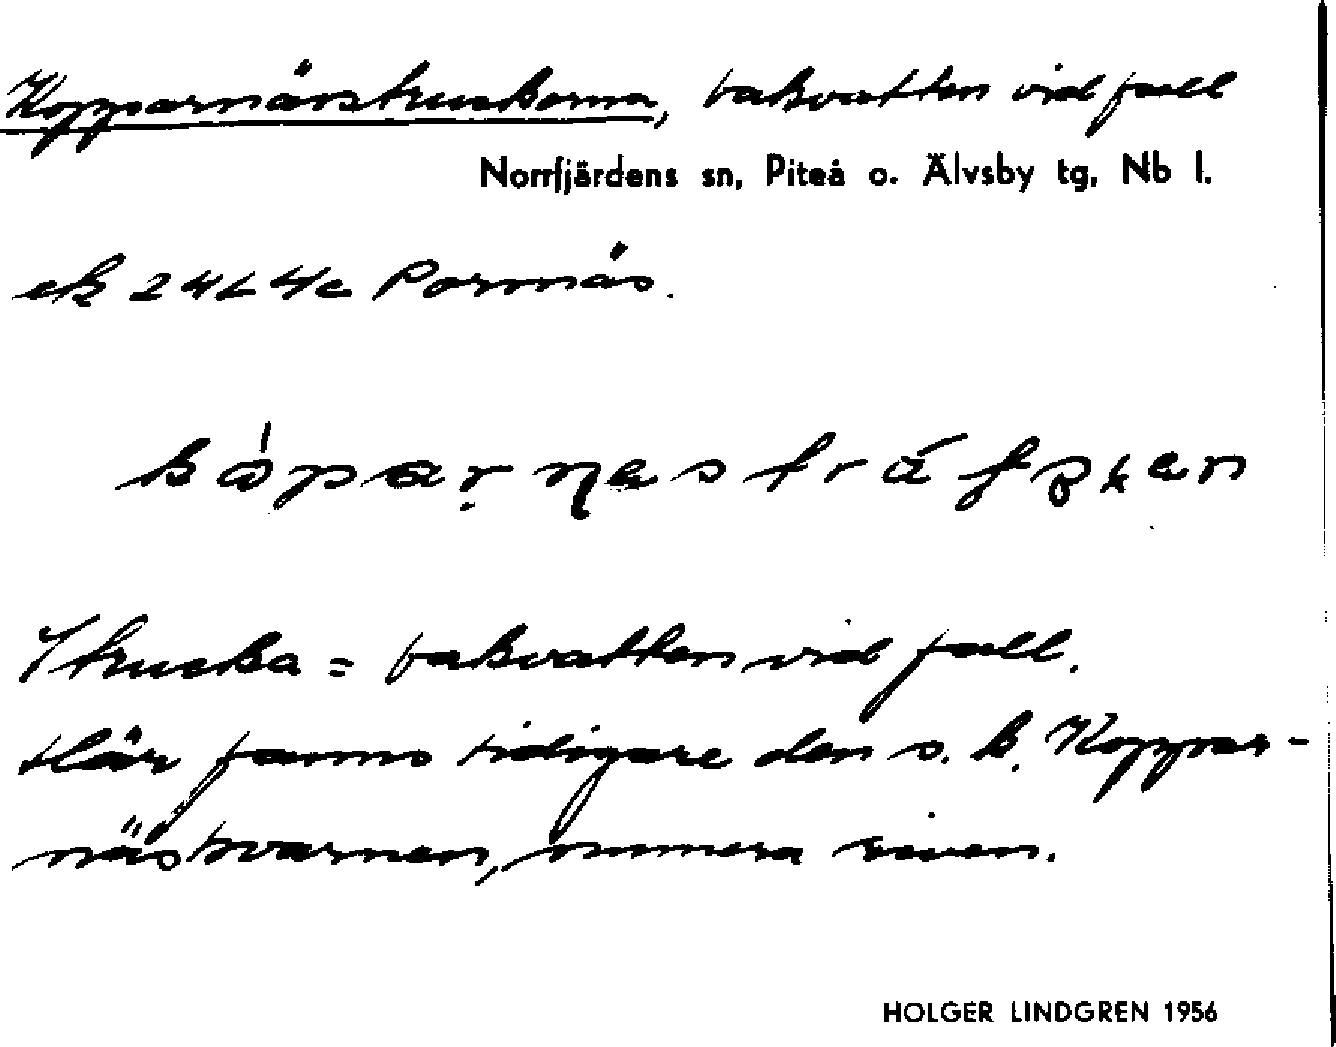 Kopparnässtruckorna, bakvatten vid fall
Norrfjärdens sn, Piteå o. Älvsby tg, Nb l.
ek 24L4c Pornäs.
Strucka = bakvatten vid fall.
Här fanns tidigare den s. k. Koppar-
näskvarnen, numera riven.
HOLGER LINDGREN 1956